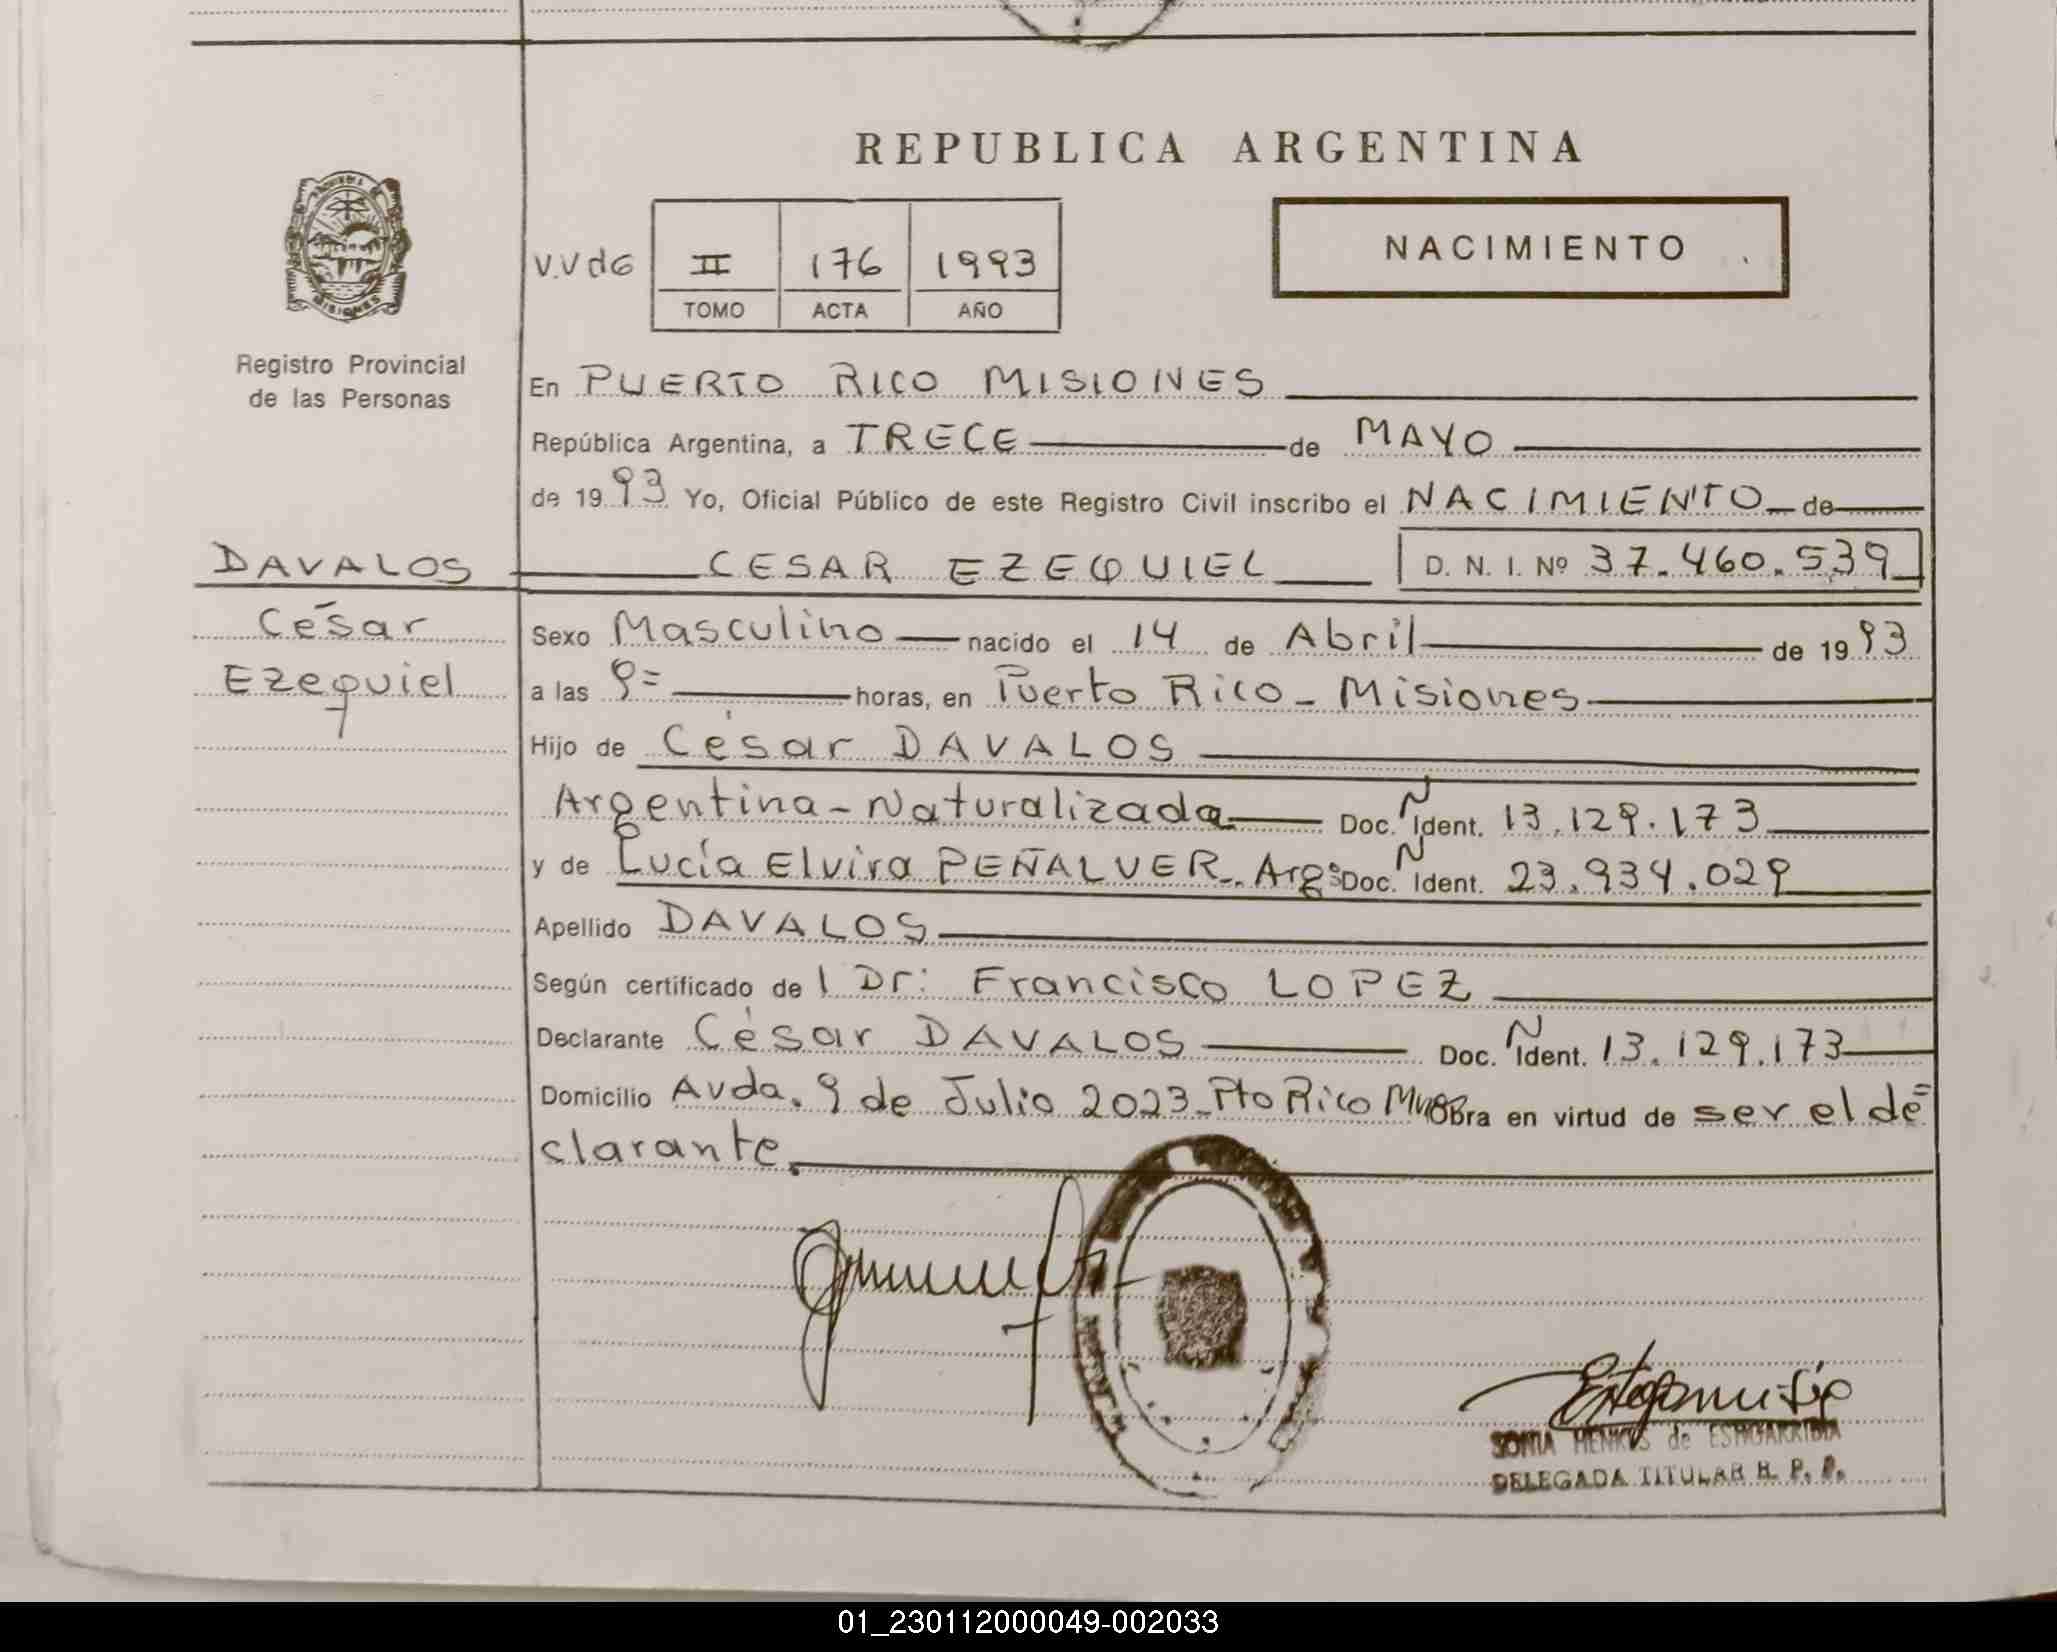 REPUBLICA ARGENTINA
NACIMIENTO
V.VdG II 176 1993
TOMO ACTA AÑO
MISIONES
Registro Provincial
de las Personas
En PUERTO RICO MISIONES
República Argentina, a TRECE de MAYO
de 1993 Yo, Oficial Público de este Registro Civil inscribo el NACIMIENTO de
DAVALOS CESAR EZEQUIEL D. N. I. Nº 37.460.539
César
Ezequiel
Sexo Masculino nacido el 14 de Abril de 1993
a las 9= horas, en Puerto Rico - Misiones
Hijo de César DAVALOS
Argentina - Naturalizada Doc. N Ident. 13.129.173
y de Lucía Elvira PEÑALVER - Arg: Doc. N Ident. 23.934.029
Apellido DAVALOS
Según certificado de l Dr: Francisco LOPEZ
Declarante César DAVALOS Doc. N Ident. 13.129.173
Domicilio Avda. 9 de Julio 2023 - Pto Rico Mnes Obra en virtud de ser el de=
clarante.
SONIA HENKUS de ESTIGARRIBIA
DELEGADA TITULAR R. P. P.
01_230112000049-002033